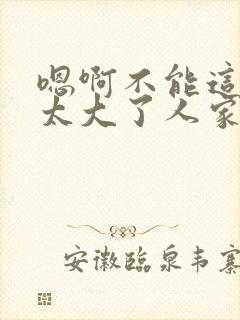 嗯啊不能這
太大了人家
安徽臨泉韦寨